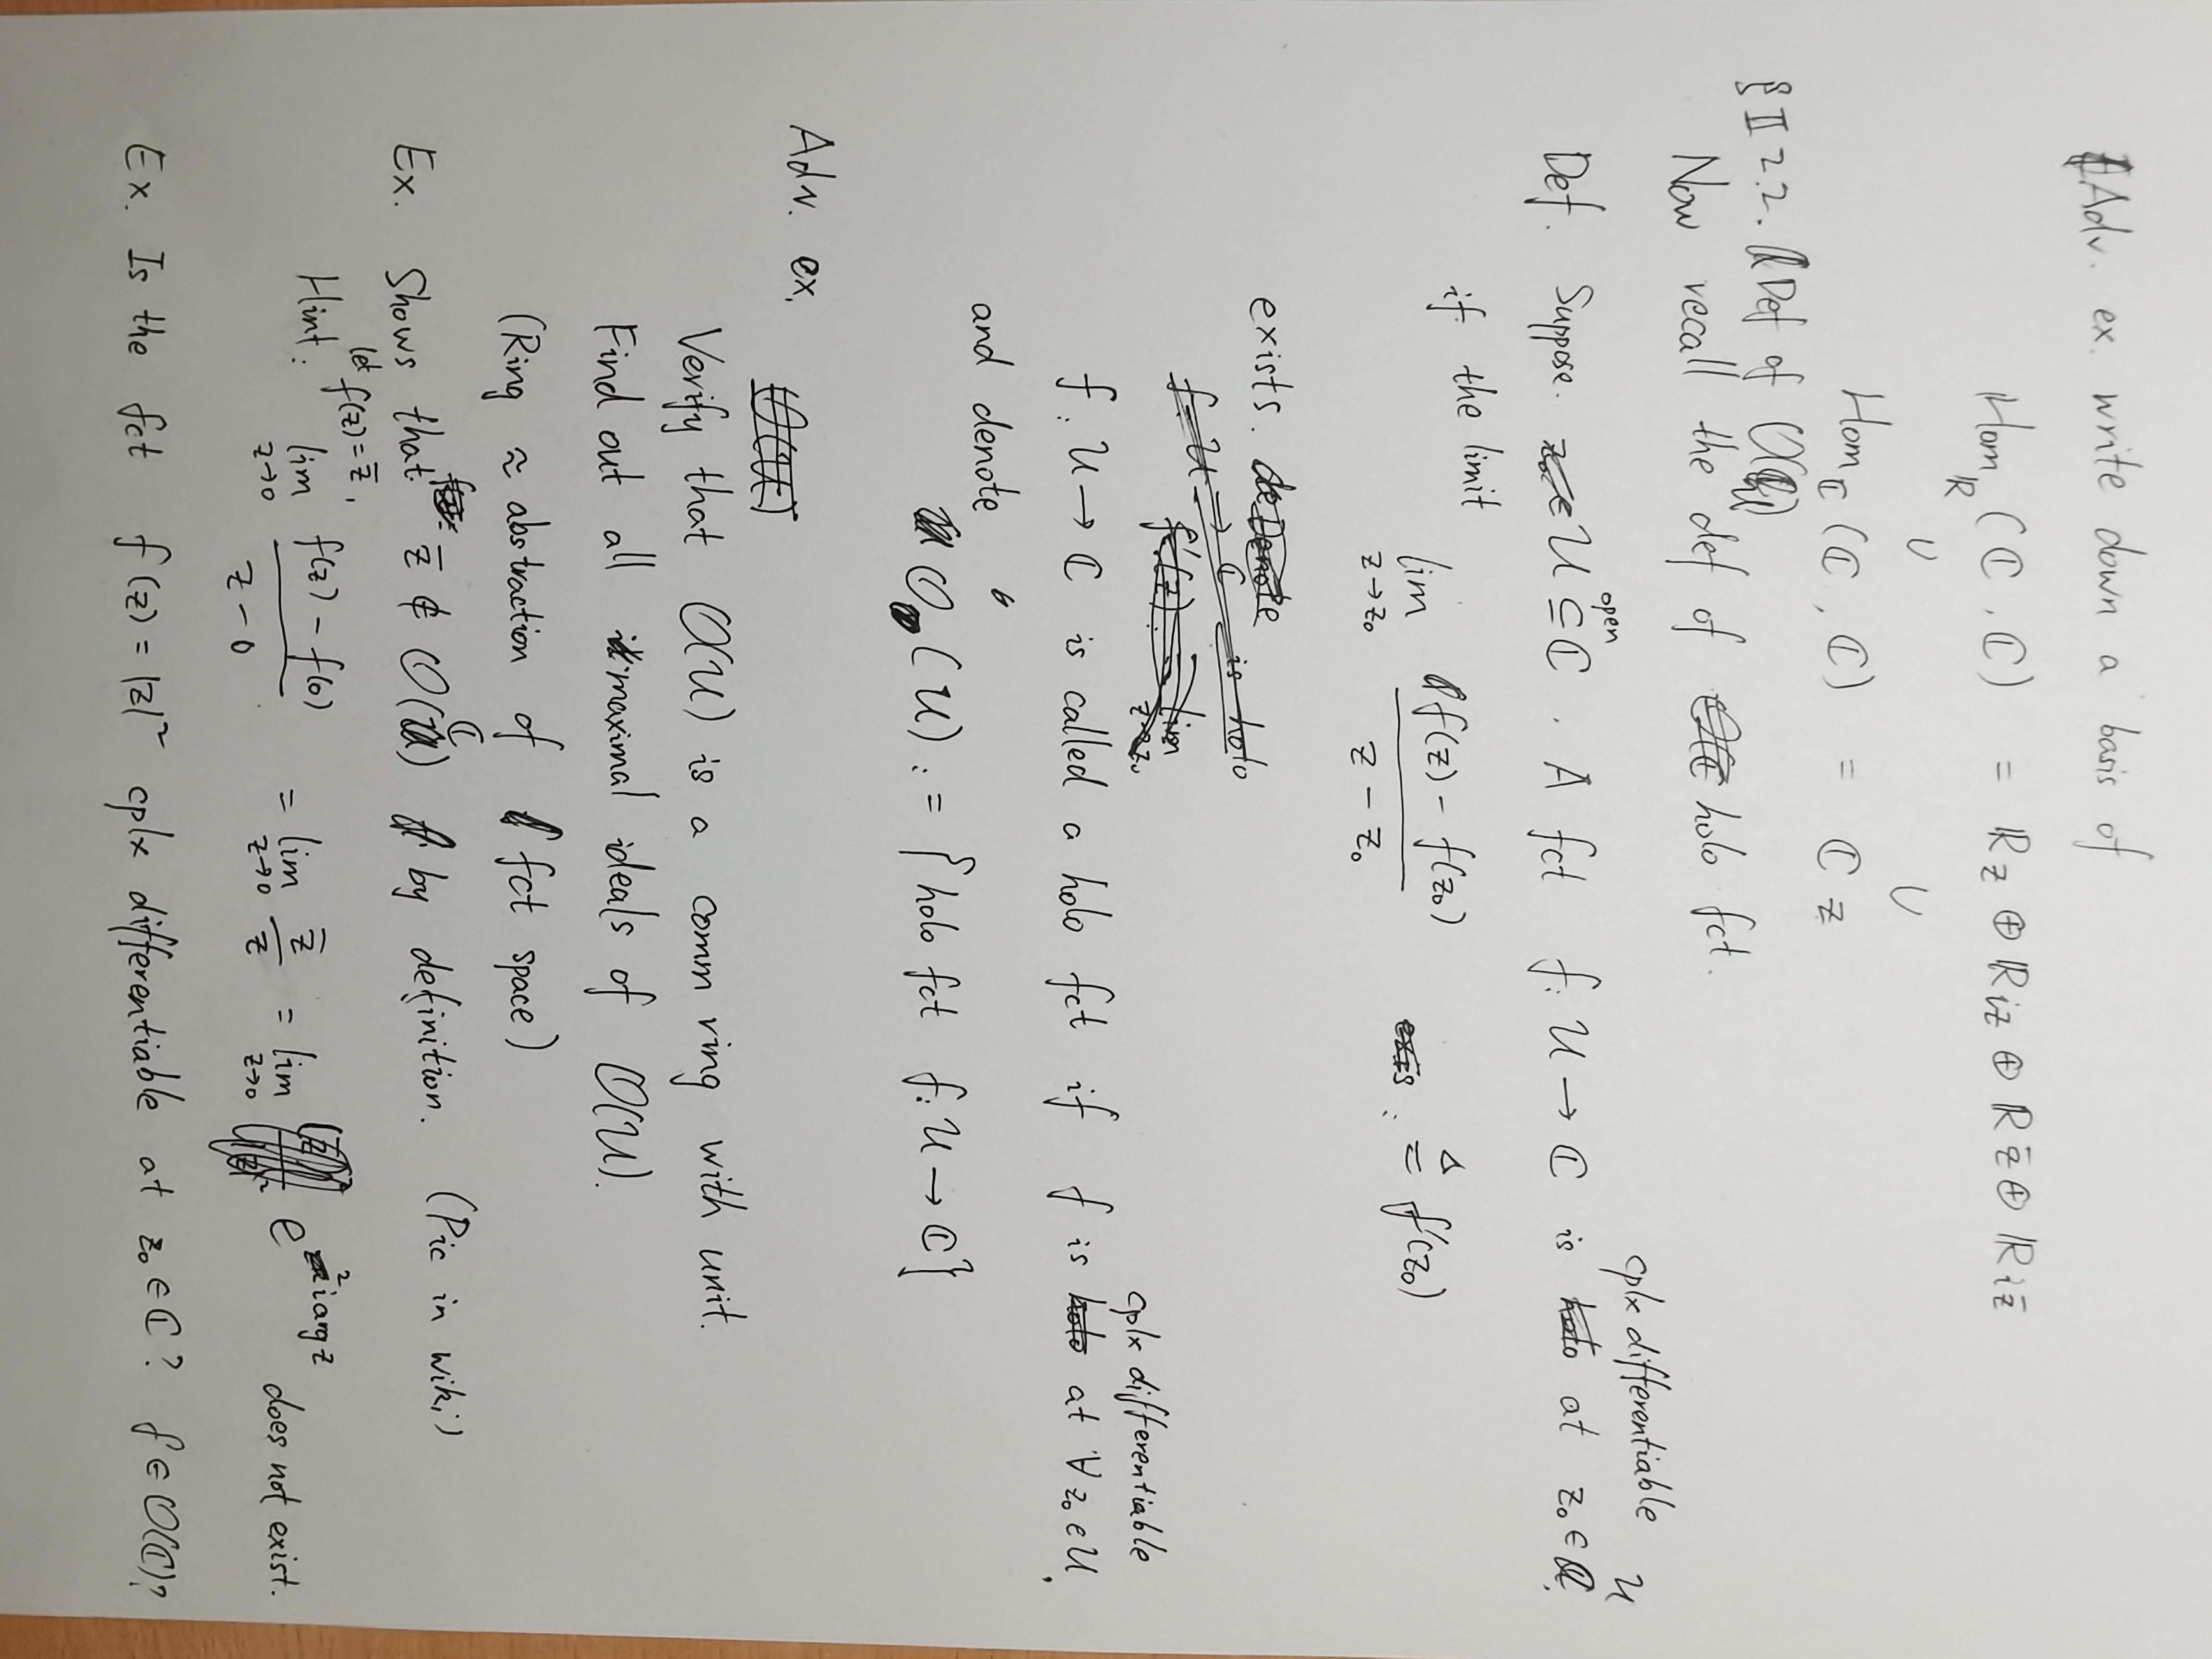 Adv. ex. write down a basis of
Hom_ℝ (ℂ, ℂ) = ℝz ⊕ ℝiz ⊕ ℝz̄ ⊕ ℝiz̄
∪ ∪
Hom_ℂ (ℂ, ℂ) = ℂz
§II 2.2. Def of O(U)
Now recall the def of holo fct.
Def. Suppose. U ⊆^{open} ℂ. A fct f: U → ℂ is cplx differentiable at z₀ ∈ U,
if the limit
lim_{z→z₀} (f(z) - f(z₀))/(z - z₀) ≜ f'(z₀)
exists.
f: U → ℂ is called a holo fct if f is cplx differentiable at ∀ z₀ ∈ U,
and denote
O(U) := {holo fct f: U → ℂ}
Adv. ex.
Verify that O(U) is a comm ring with unit.
Find out all maximal ideals of O(U).
(Ring ≈ abstraction of fct space)
Ex. Shows that z̄ ∉ O(ℂ) by definition. (Pic in wiki)
let f(z) = z̄,
Hint: lim_{z→0} (f(z) - f(0))/(z - 0) = lim_{z→0} z̄/z = lim_{z→0} e^{2iargz} does not exist.
Ex. Is the fct f(z) = |z|² cplx differentiable at z₀ ∈ ℂ? f ∈ O(ℂ)?